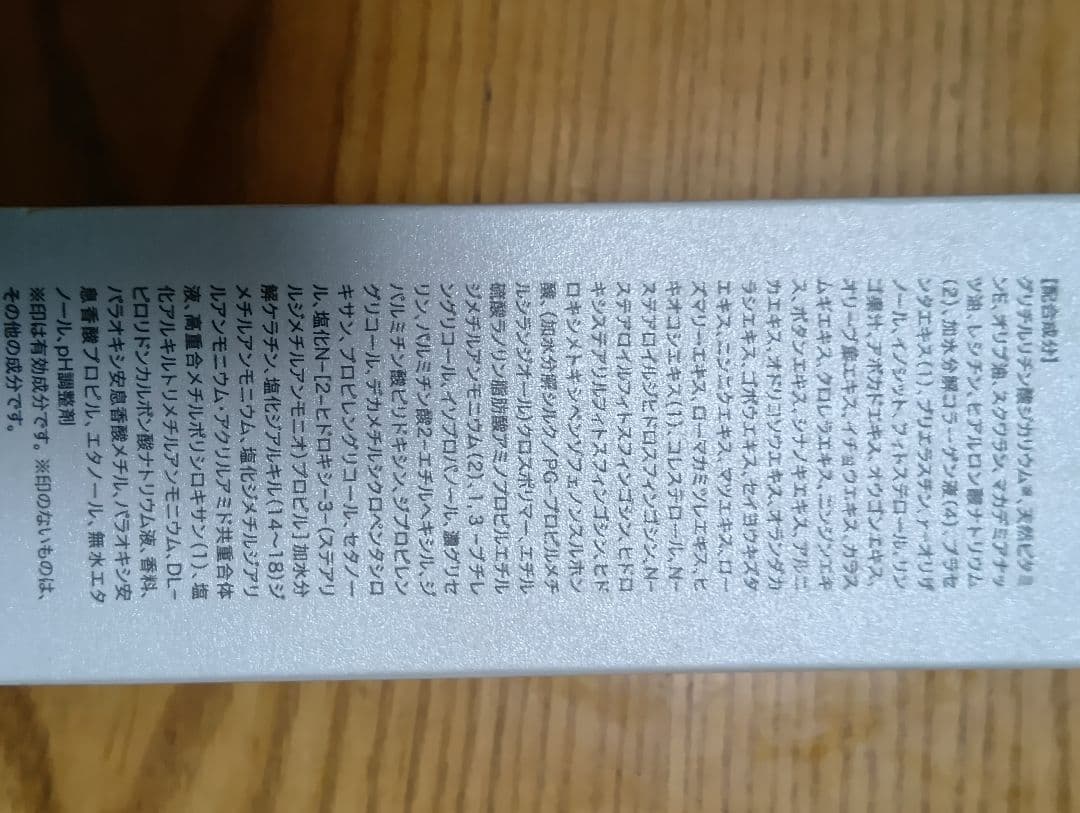 【配合成分】
グリチルリチン酸ジカリウム※、天然ビタミ
ンE、オリブ油、スクワラン、マカデミアナッ
ツ油、レシチン、ヒアルロン酸ナトリウム
(2)、加水分解コラーゲン液(4)、プラセ
ンタエキス(1)、プリエラスチン、γ-オリザ
ノール、イノシット、フィトステロール、リン
ゴ果汁、アボカドエキス、オウゴンエキス、
オリーブ葉エキス、イチョウエキス、カラス
ムギエキス、クロレラエキス、ニンジンエキ
ス、ボタンエキス、シナノキエキス、アルニ
カエキス、オドリコソウエキス、オランダカ
ラシエキス、ゴボウエキス、セイヨウキズタ
エキス、ニンニクエキス、マツエキス、ロー
ズマリーエキス、ローマカミツレエキス、ヒ
キオコシエキス(1)、コレステロール、N-
ステアロイルジヒドロスフィンゴシン、N-
ステアロイルフィトスフィンゴシン、ヒドロ
キシステアリルフィトスフィンゴシン、ヒド
ロキシメトキシベンゾフェノンスルホン
酸、(加水分解シルク/PG-プロピルメチ
ルシランジオール)クロスポリマー、エチル
硫酸ラノリン脂肪酸アミノプロピルエチル
ジメチルアンモニウム(2)、1,3-ブチレ
ングリコール、イソプロパノール、濃グリセ
リン、パルミチン酸2-エチルヘキシル、ジ
パルミチン酸ピリドキシン、ジプロピレン
グリコール、デカメチルシクロペンタシロ
キサン、プロピレングリコール、セタノー
ル、塩化N-[2-ヒドロキシ-3-(ステアリ
ルジメチルアンモニオ)プロピル]加水分
解ケラチン、塩化ジアルキル(14～18)ジ
メチルアンモニウム、塩化ジメチルジアリ
ルアンモニウム・アクリルアミド共重合体
液、高重合メチルポリシロキサン(1)、塩
化アルキルトリメチルアンモニウム、DL-
ピロリドンカルボン酸ナトリウム液、香料、
パラオキシ安息香酸メチル、パラオキシ安
息香酸プロピル、エタノール、無水エタ
ノール、pH調整剤
※印は有効成分です。※印のないものは、
その他の成分です。